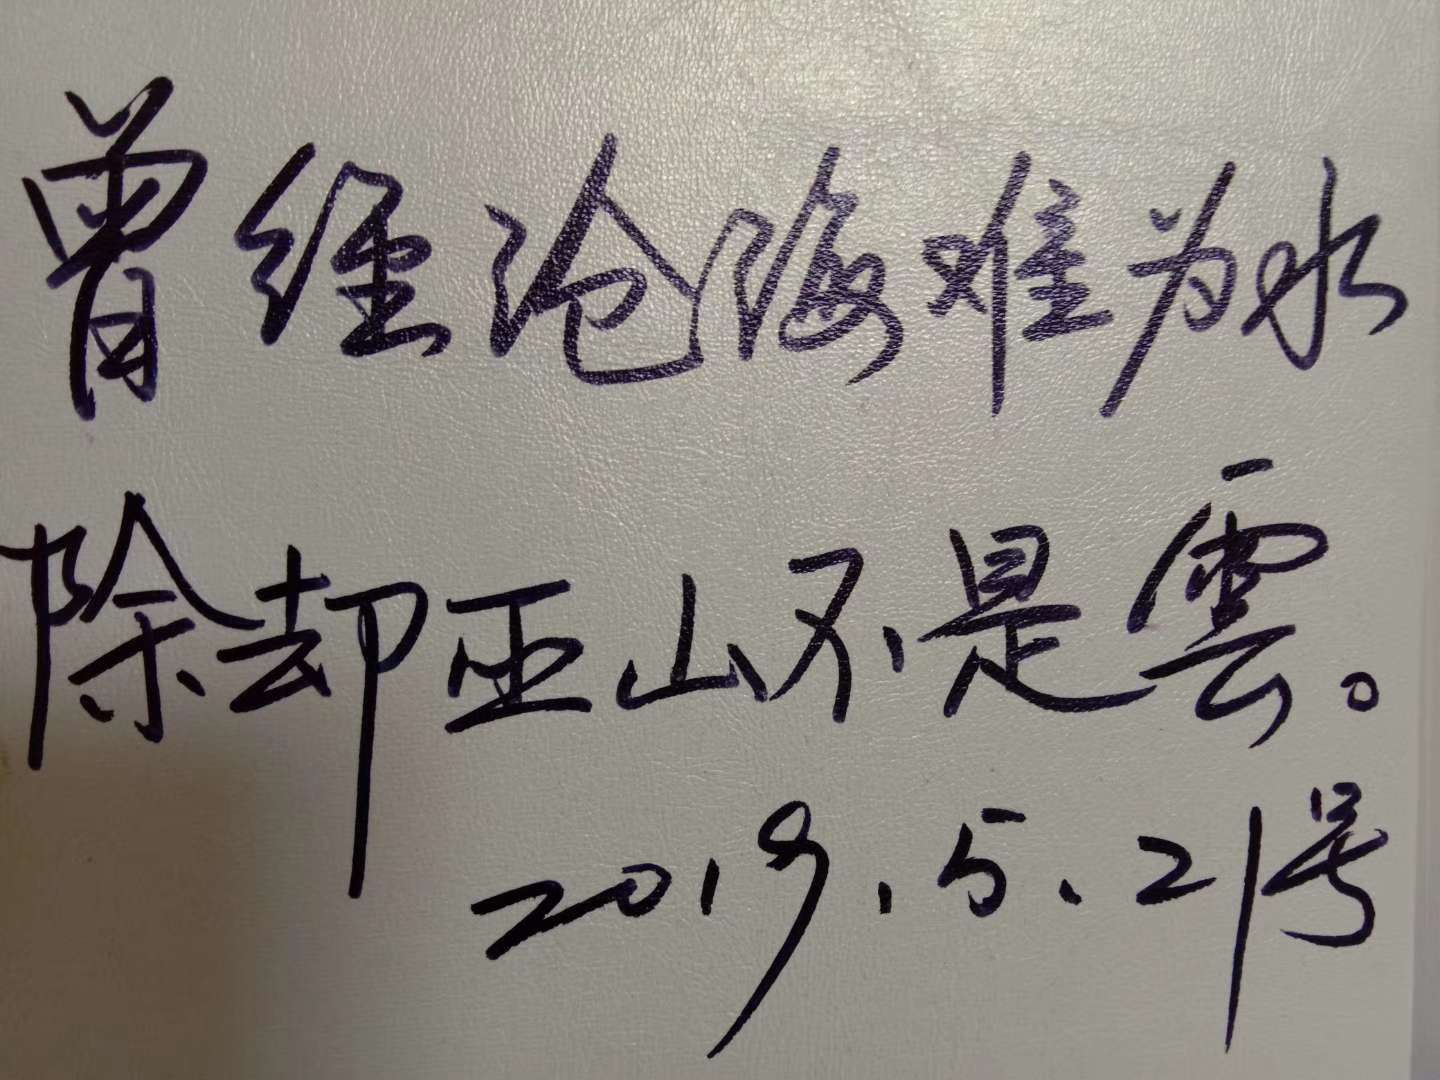 曾经沧海难为水
除却巫山不是雲。
2019.5.21号